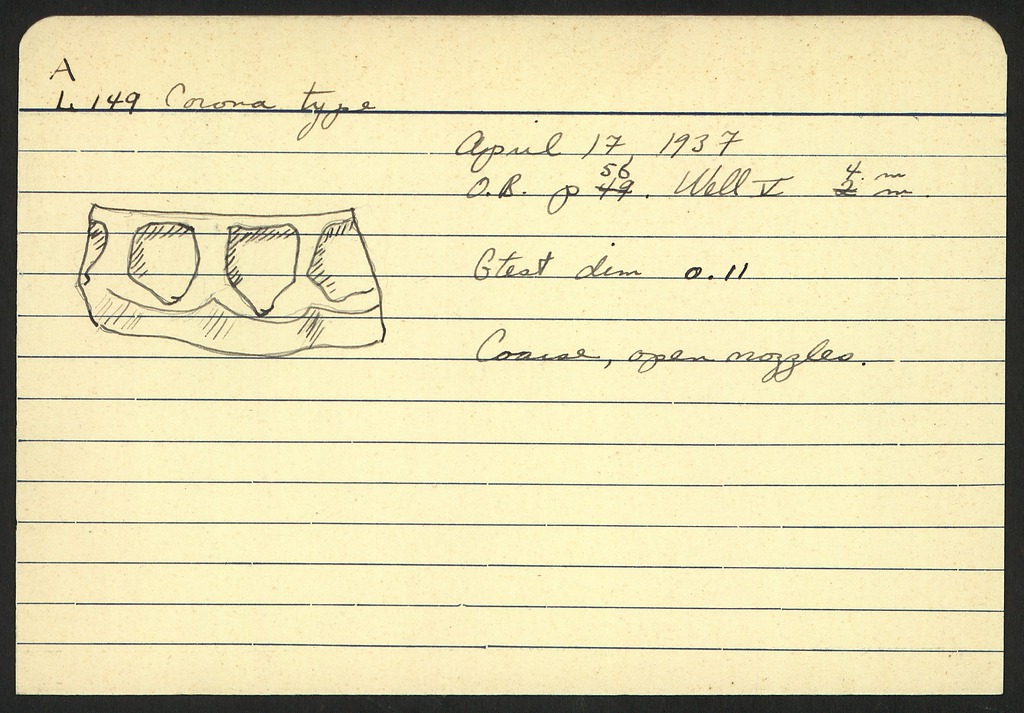 A
L. 149 Corona type
April 17, 1937
O.B. p 49. 56 Well V 2 m 4 m.
Gtest dim 0.11
Coarse, open nozzles.